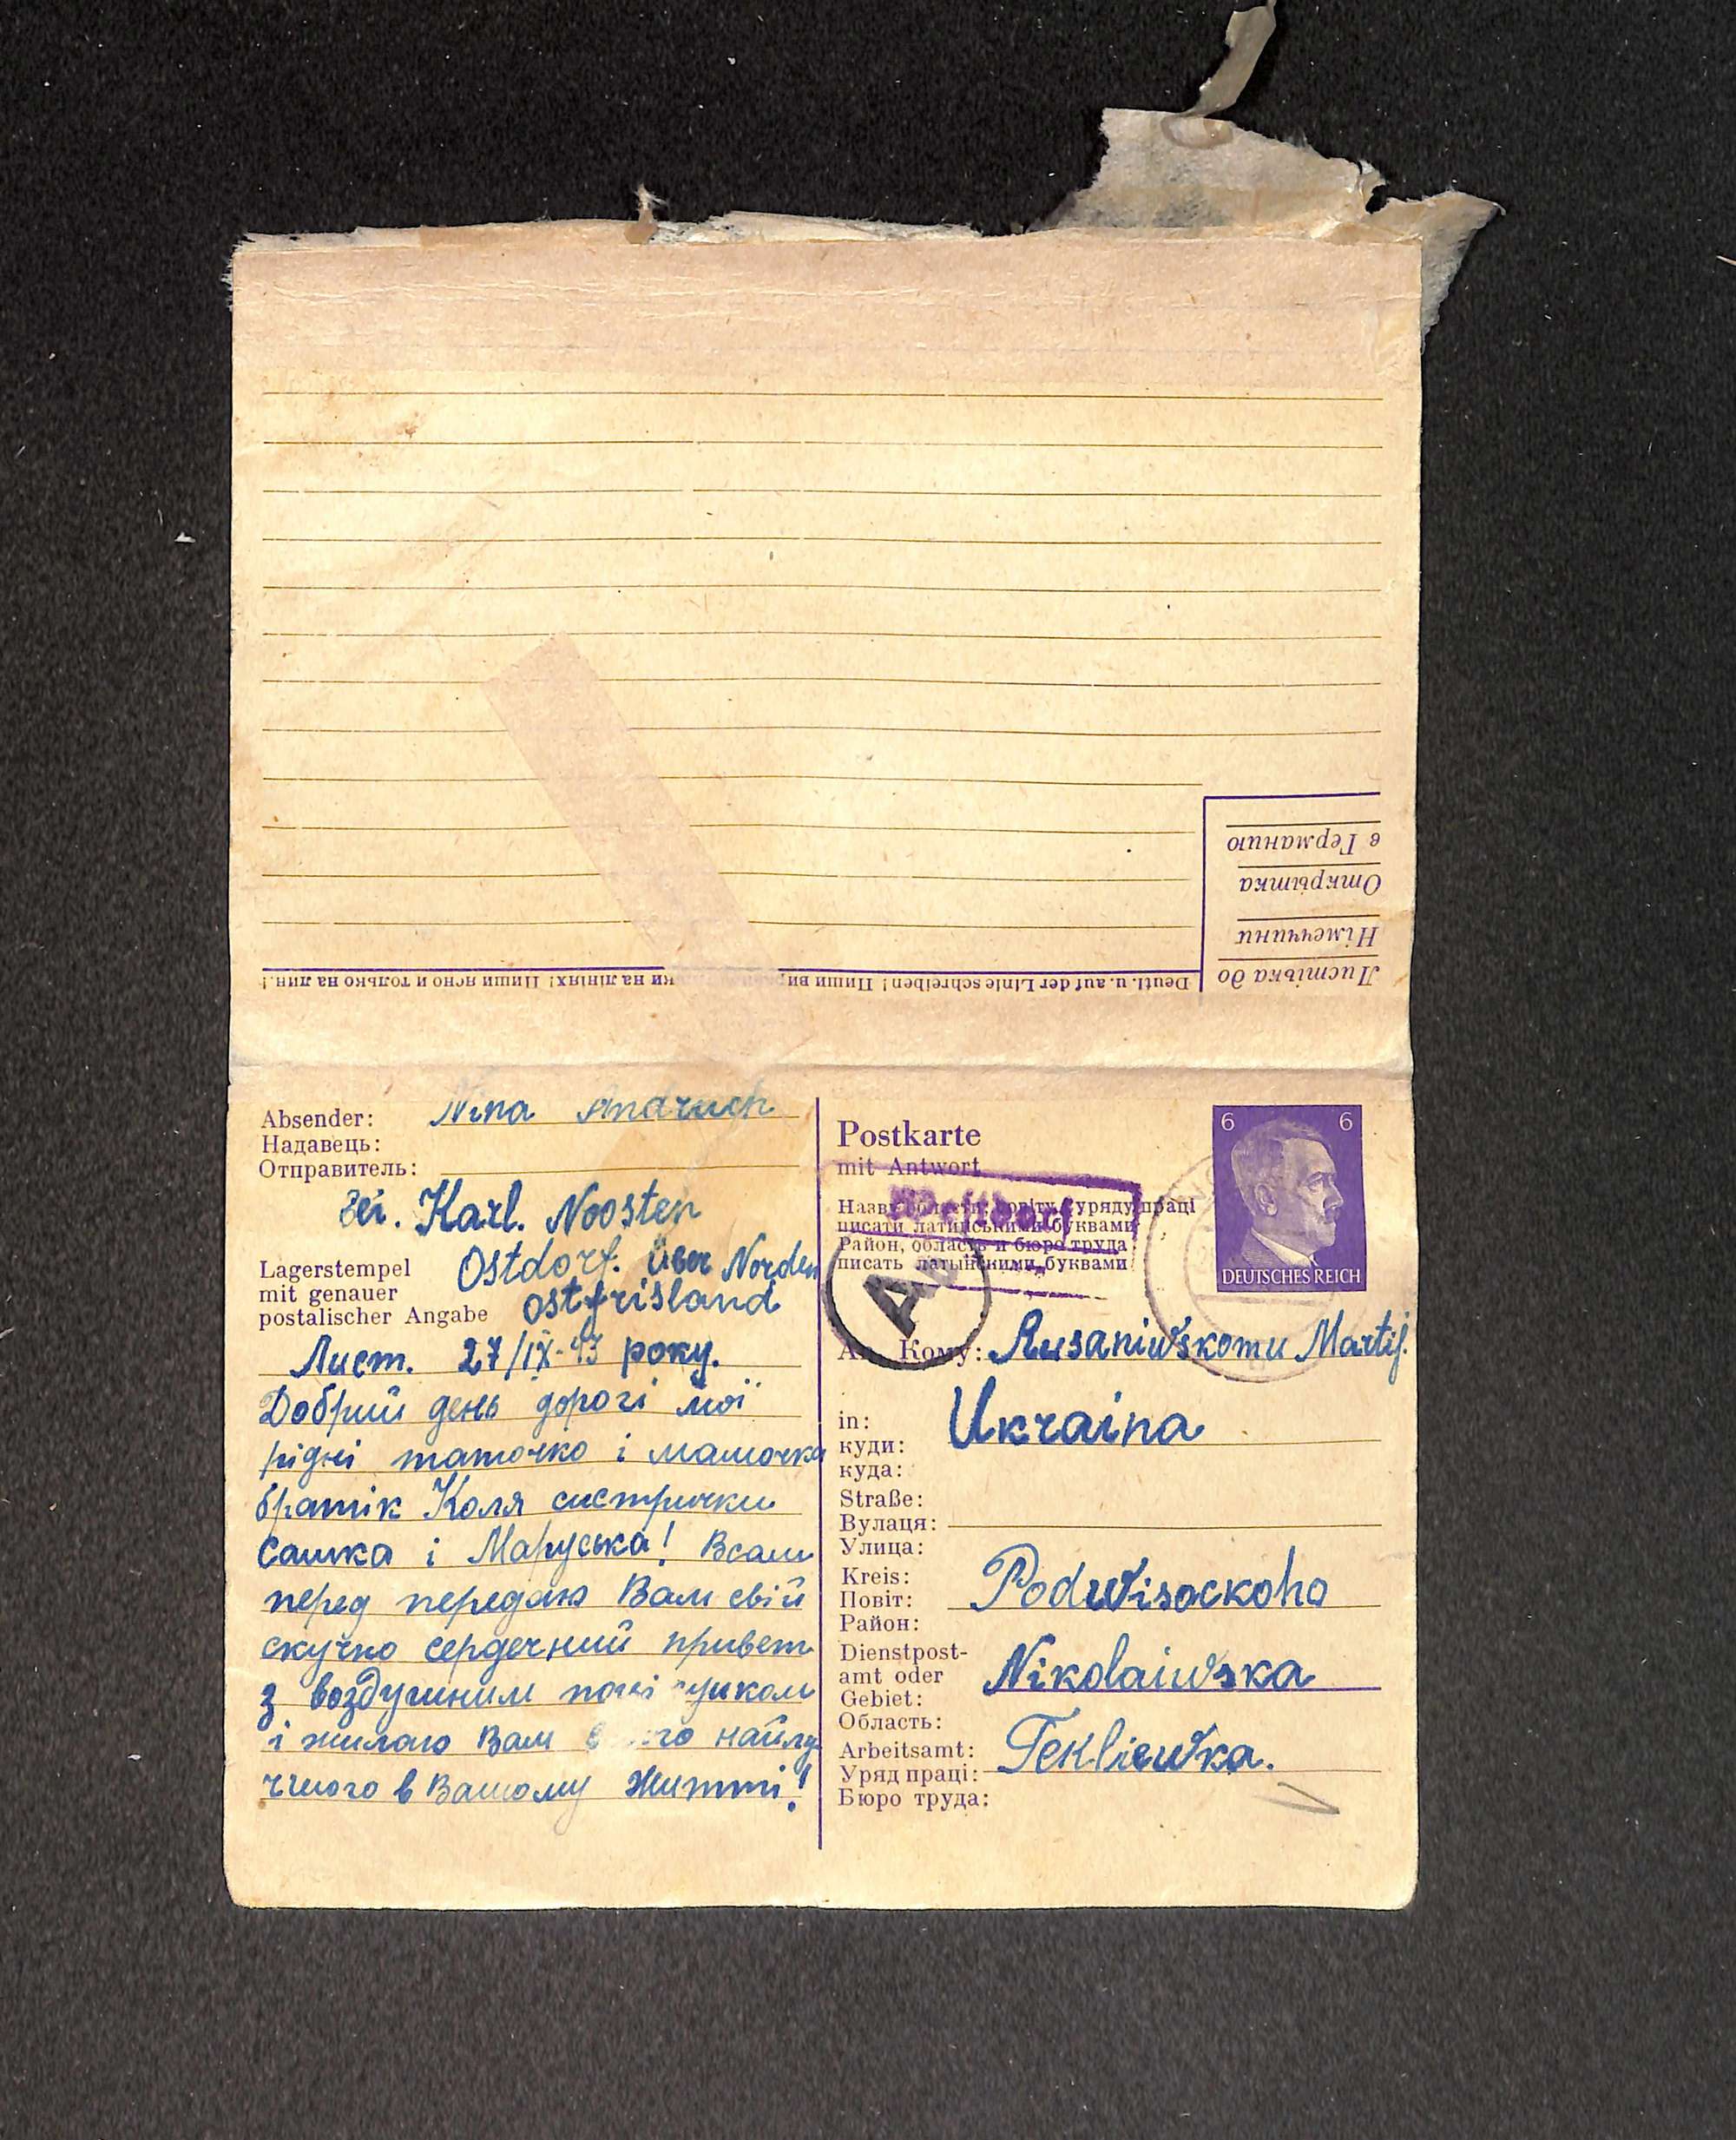 Листівка до
Німеччини
Открітка
в Германию
Deutl. u. auf der Linie schreiben! Пиши ки на лініях! Пиши ясно и только на лин.!
Absender: Nina Andruch
Надавець:
Отправитель:
bei. Karl. Noosten
Lagerstempel
mit genauer
postalischer Angabe
Ostdorf. über Norden
ostfrisland
Лист. 27/IX-43 року.
Добрий день дорогі мої
рідні таточко і маточка
братік Коля систрички
Сашка і Маруська! Всам
перед передаю Вам свій
скучно сердечний привет
з воздушним
і жилаю Вам найлу
чшого в Вашому житті!
Postkarte
mit Antwort
6 6
DEUTSCHES REICH
Назву уряду праці
писати латинськими буквами
Район, область и бюро труда
писать латынскими буквами
Кому: Rusaniwskomu Martij.
in:
куди:
куда:
Ukraina
Straße:
Вулаця:
Улица:
Kreis:
Повіт:
Район:
Podwisockoho
Dienstpost-
amt oder
Gebiet:
Область:
Nikolaiwska
Arbeitsamt:
Уряд праці:
Бюро труда:
Tekliewka.